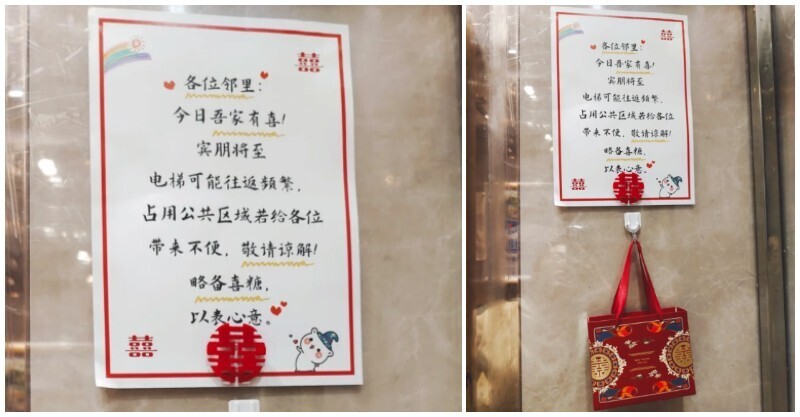 囍
各位邻里:
今日吾家有喜!
宾朋将至
电梯可能往返频繁,
占用公共区域若给各位
带来不便,敬请谅解!
略备喜糖,
以表心意。
囍
囍
囍
各位邻里:
今日吾家有喜!
宾朋将至
电梯可能往返频繁,
占用公共区域若给各位
带来不便,敬请谅解!
略备喜糖,
以表心意。
囍
囍
囍
囍